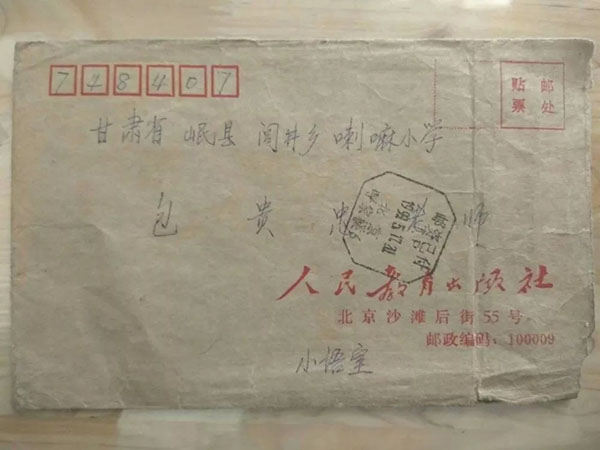 748407
贴邮
票处
甘肃省 岷县 闾井乡 喇嘛小学
包贵忠老师
人民教育出版社
北京沙滩后街55号
邮政编码：100009
小语室